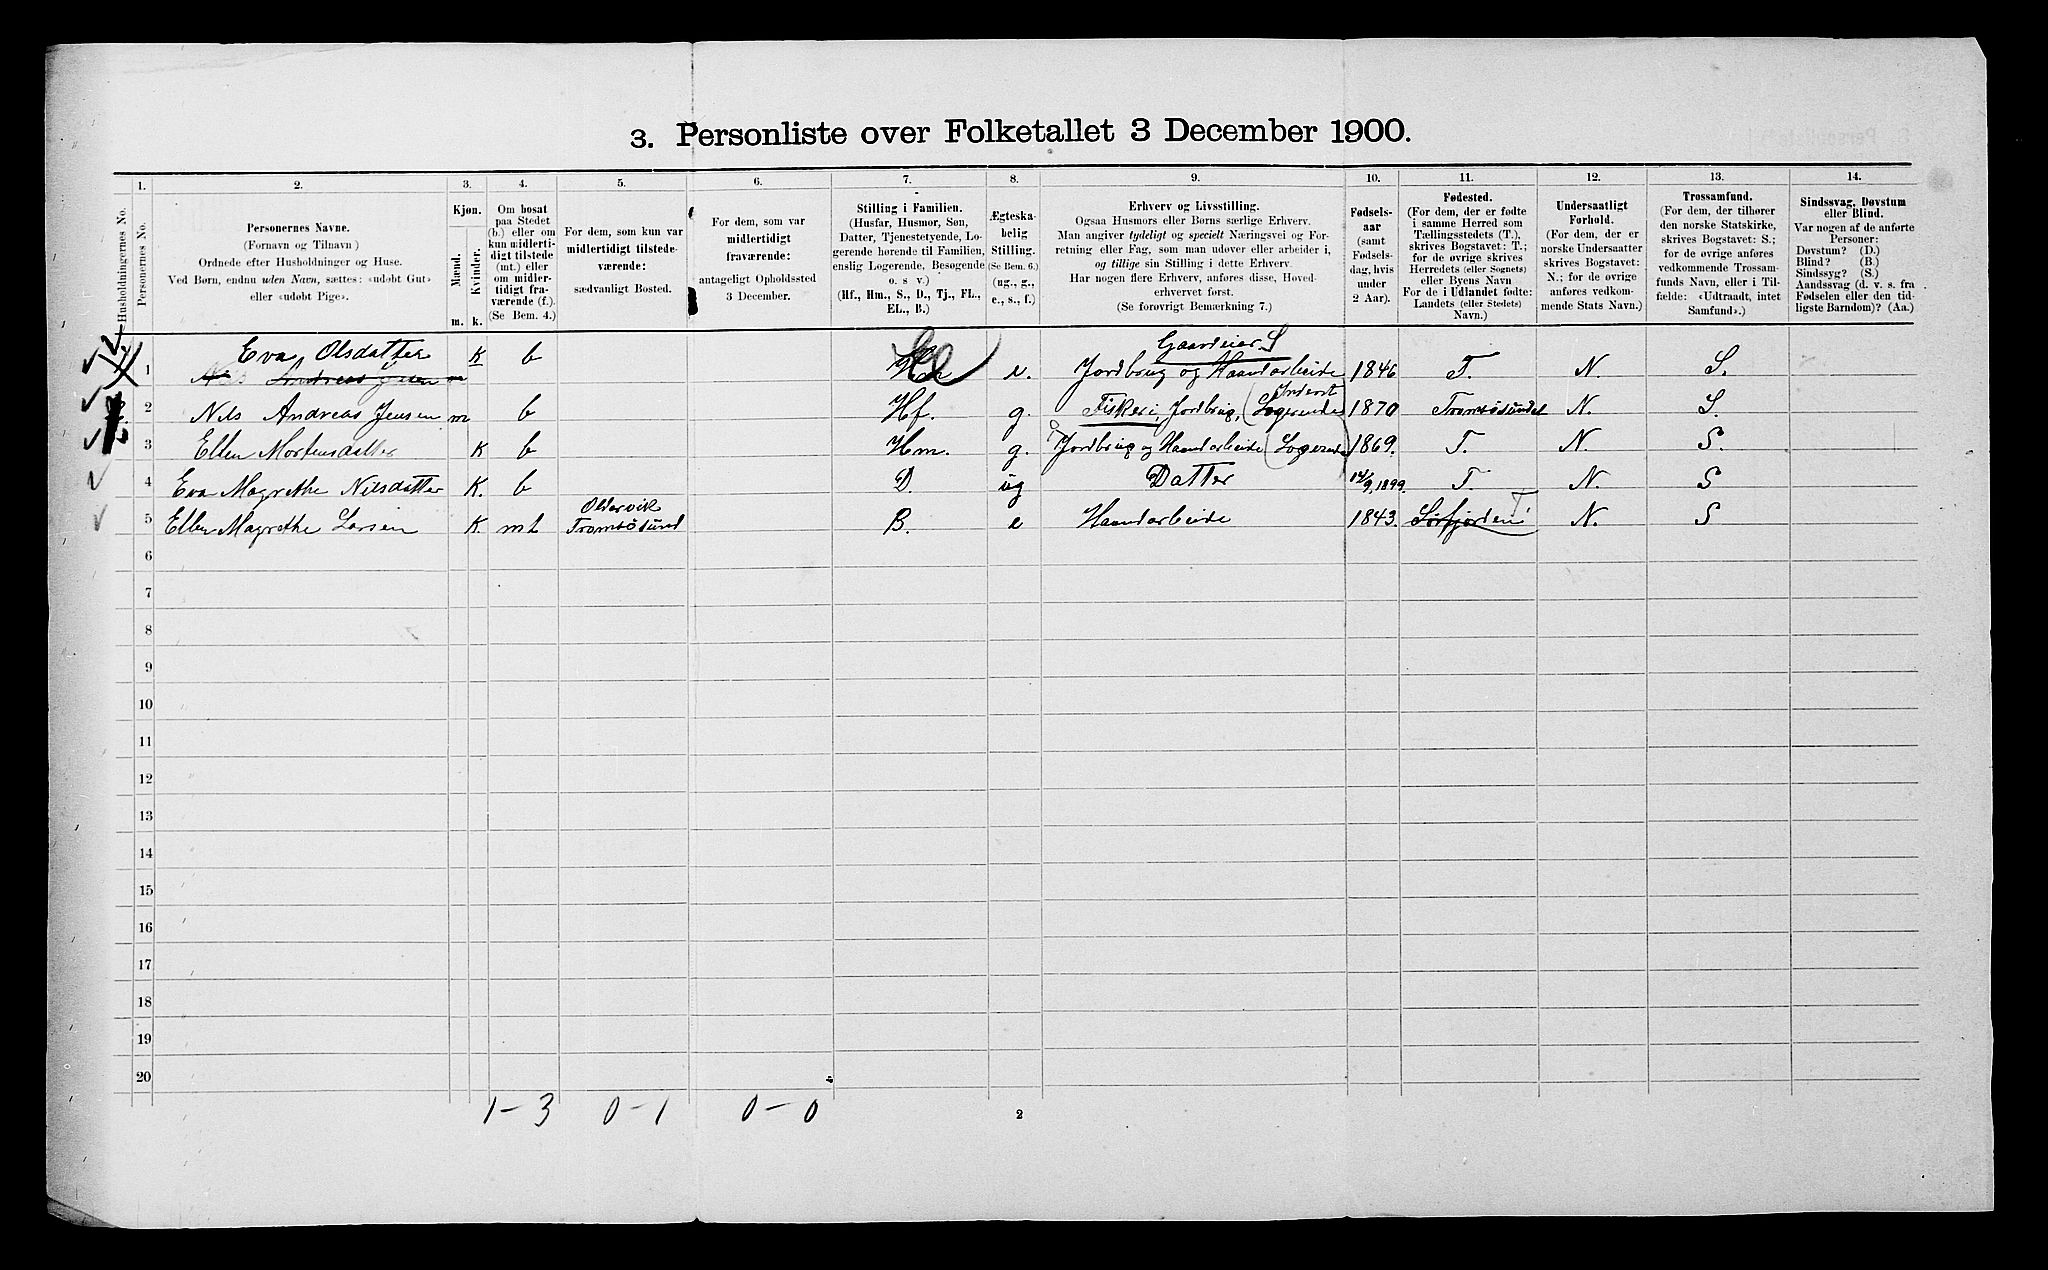 3. Personliste over Folketallet 3 December 1900.
1. 2. 3. 4. 5. 6. 7. 8. 9. 10. 11. 12. 13. 14.
Husholdningernes No.
Personernes No.
Personernes Navne.
(Fornavn og Tilnavn)
Ordnede efter Husholdninger og Huse.
Ved Børn, endnu uden Navn, sættes: «udøbt Gut»
eller «udøbt Pige».
Kjøn.
Mænd.
Kvinder.
m. k.
Om bosat
paa Stedet
(b.) eller om
kun midlerti-
digt tilstede
(mt.) eller
om midler-
tidigt fra-
værende (f.).
(Se Bem. 4.)
For dem, som kun var
midlertidigt tilstede-
værende:
sædvanligt Bosted.
For dem, som var
midlertidigt
fraværende:
antageligt Opholdssted
3 December.
Stilling i Familien.
(Husfar, Husmor, Søn,
Datter, Tjenestetyende, Lo-
gerende hørende til Familien,
enslig Logerende, Besøgende
o. s v.)
(Hf., Hm., S., D., Tj., FL.,
EL., B.)
Ægteska-
belig
Stilling.
(Se Bem. 6.)
(ug., g.,
e., s., f.)
Erhverv og Livsstilling.
Ogsaa Husmors eller Børns særlige Erhverv.
Man angiver tydeligt og specielt Næringsvei og For-
retning eller Fag, som man udøver eller arbeider i,
og tillige sin Stilling i dette Erhverv.
Har nogen flere Erhverv, anføres disse, Hoved-
erhvervet først.
(Se forøvrigt Bemærkning 7.)
Fødsels-
aar
(samt
Fødsels-
dag, hvis
under
2 Aar).
Fødested.
(For dem, der er fødte
i samme Herred som
Tællingsstedets (T.),
skrives Bogstavet: T.;
for de øvrige skrives
Herredets (eller Sognets)
eller Byens Navn
For de i Udlandet fødte:
Landets (eller Stedets)
Navn.)
Undersaatligt
Forhold.
(For dem, der er
norske Undersaatter
skrives Bogstavet:
N.; for de øvrige
anføres vedkom-
mende Stats Navn.)
Trossamfund.
(For dem, der tilhører
den norske Statskirke,
skrives Bogstavet: S.;
for de øvrige anføres
vedkommende Trossam-
funds Navn, eller i Til-
fælde: «Udtraadt, intet
Samfund».)
Sindssvag, Døvstum
eller Blind.
Var nogen af de anførte
Personer:
Døvstum? (D.)
Blind? (B.)
Sindssyg? (S.)
Aandssvag (d. v. s. fra
Fødselen eller den tid-
ligste Barndom)? (Aa.)
Eva Olsdatter K b Gaardeier S
1 Nils Andreas Jensen m e. Jordbrug og Haandarbeide 1846 T. N. S.
Inderst
2 Nils Andreas Jensen m b Hf. g. Fiskeri, Jordbrug, (Logerende) 1870 Tromsösundet N. S.
3 Ellen Mortensdatter K b Hm. g. Jordbrug og Haandarbeide (Logerende) 1869. T. N. S
4 Eva Magrethe Nilsdatter K. b D. ug Datter 14/9, 1899. T. N. S
Oldervik T
5 Ellen Magrethe Larsen K. mt Tromsösund B. e Haandarbeide 1843. Sörfjorden N. S
6
7
8
9
10
11
12
13
14
15
16
17
18
19
20
1-3 0-1 0-0 2